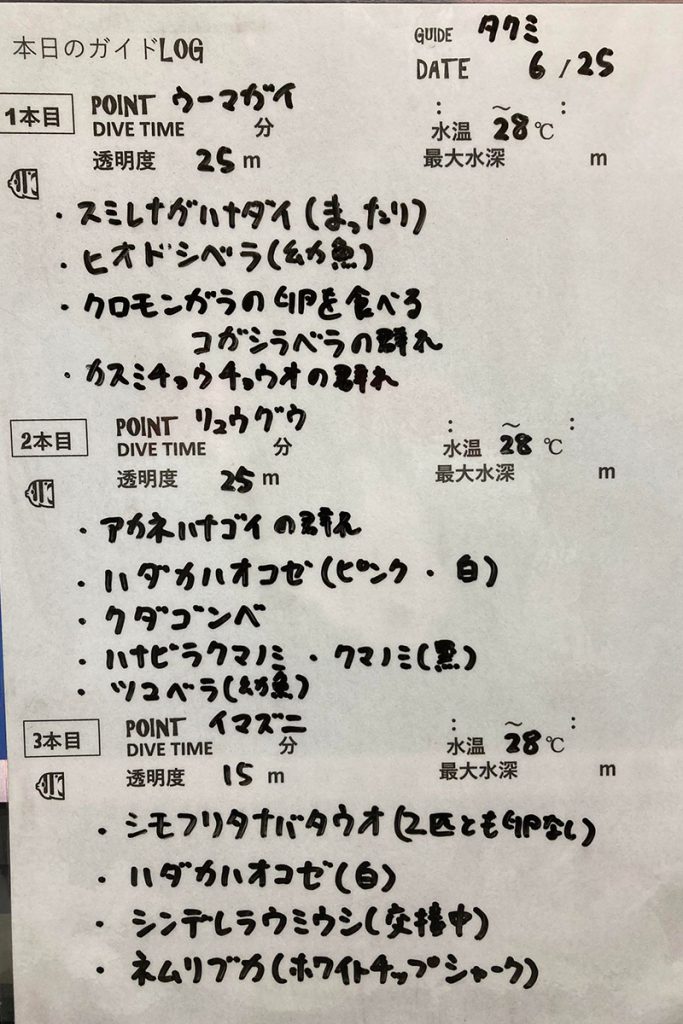 本日のガイドLOG
GUIDE タクミ
DATE 6/25
1本目 POINT ウーマガイ
: ～ :
DIVE TIME 分 水温 28℃
透明度 25m 最大水深 m
・スミレナガハナダイ(まったり)
・ヒオドシベラ(幼魚)
・クロモンガラの卵を食べる
コガシラベラの群れ
・カスミチョウチョウオの群れ
2本目 POINT リュウグウ
: ～ :
DIVE TIME 分 水温 28℃
透明度 25m 最大水深 m
・アカネハナゴイの群れ
・ハダカハオコゼ(ピンク・白)
・クダゴンベ
・ハナビラクマノミ・クマノミ(黒)
・ツユベラ(幼魚)
3本目 POINT イマズニ
: ～ :
DIVE TIME 分 水温 28℃
透明度 15m 最大水深 m
・シモフリタナバタウオ(2匹とも卵なし)
・ハダカハオコゼ(白)
・シンデレラウミウシ(交接中)
・ネムリブカ(ホワイトチップシャーク)